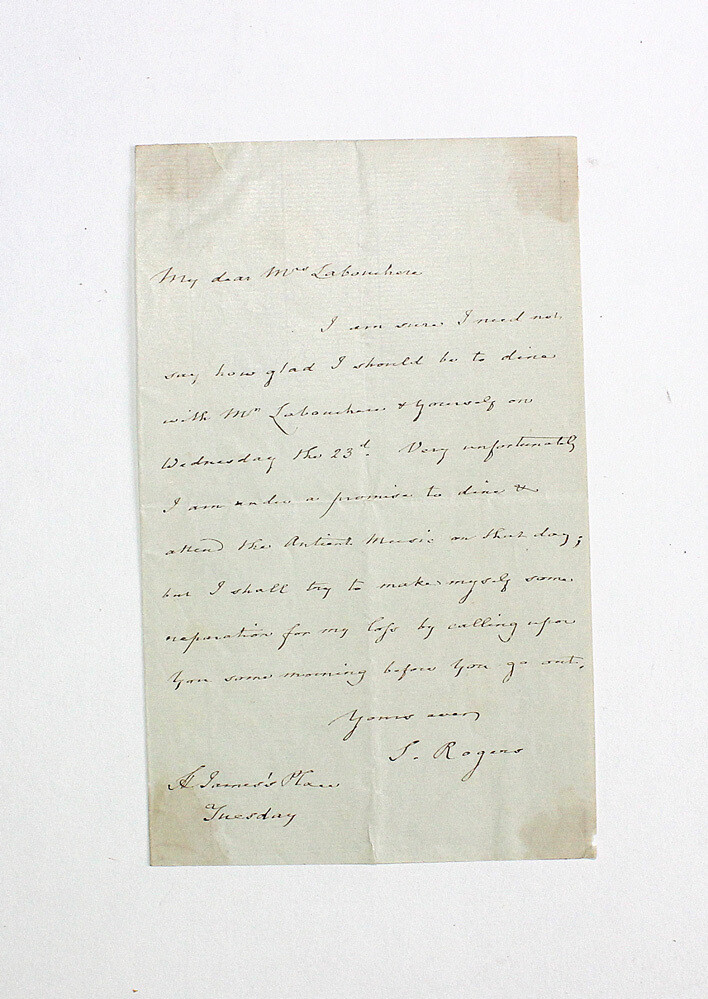 My dear Mrs Labouchere
I am sure I need not
say how glad I should be to dine
with Mr Labouchere & yourself on
Wednesday the 23d. Very unfortunately
I am under a promise to dine &
attend the Antient Music on that day;
but I shall try to make myself some
reparation for my loss by calling upon
you some morning before you go out.
Yours ever
S. Rogers
St James's Place
Tuesday